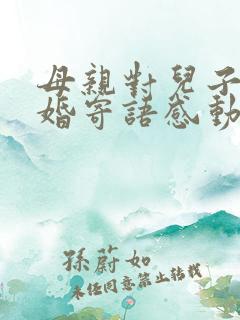 母親對兒子
婚寄語感動
孫蔚如
未经同意禁止转载